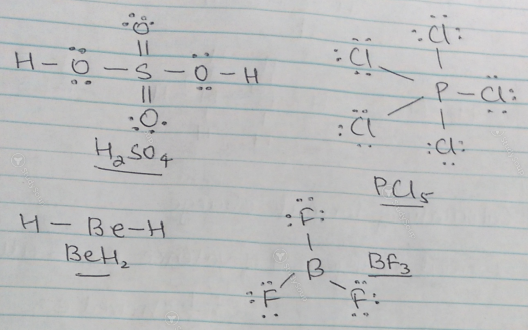 O
||
H – O – S – O – H
||
O
H2SO4
Cl
Cl
P – Cl
Cl
Cl
PCl5
H – Be – H
BeH2
F
B
F F
BF3